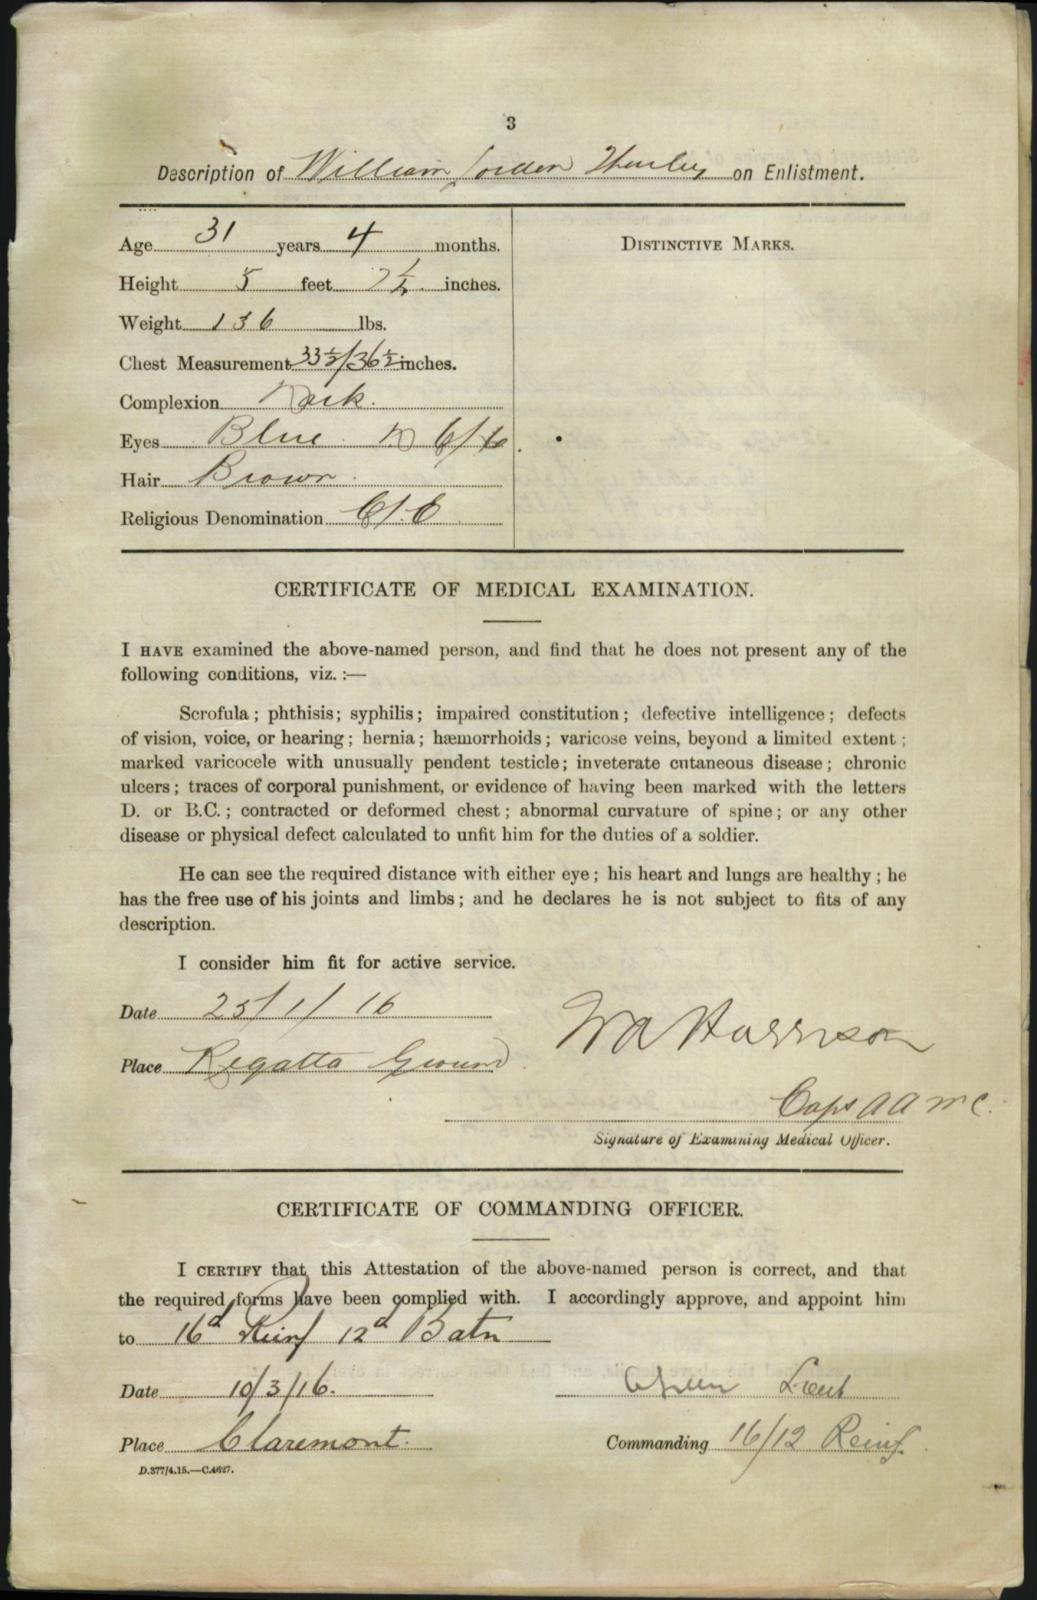 3
Description of William Jordan Hurley on Enlistment.
Age 31 years 4 months.
DISTINCTIVE MARKS.
Height 5 feet 7½ inches.
Weight 136 lbs.
Chest Measurement 33½/36½ inches.
Complexion Dark.
Eyes Blue 6/6
Hair Brown.
Religious Denomination C/.E
CERTIFICATE OF MEDICAL EXAMINATION.
I HAVE examined the above-named person, and find that he does not present any of the
following conditions, viz. :—
Scrofula ; phthisis; syphilis ; impaired constitution ; defective intelligence ; defects
of vision, voice, or hearing ; hernia ; hæmorrhoids ; varicose veins, beyond a limited extent ;
marked varicocele with unusually pendent testicle ; inveterate cutaneous disease ; chronic
ulcers ; traces of corporal punishment, or evidence of having been marked with the letters
D. or B.C. ; contracted or deformed chest ; abnormal curvature of spine ; or any other
disease or physical defect calculated to unfit him for the duties of a soldier.
He can see the required distance with either eye ; his heart and lungs are healthy ; he
has the free use of his joints and limbs ; and he declares he is not subject to fits of any
description.
I consider him fit for active service.
Date 25/1/16
Place Regatta Ground
W A Harrison
Capt AAMC.
Signature of Examining Medical Officer.
CERTIFICATE OF COMMANDING OFFICER.
I CERTIFY that this Attestation of the above-named person is correct, and that
the required forms have been complied with. I accordingly approve, and appoint him
to 16th Reinf 12th Batn
Date 10/3/16.
Lieut
Place Claremont.
Commanding 16/12 Reinf.
D.377/4.15.—C.4627.